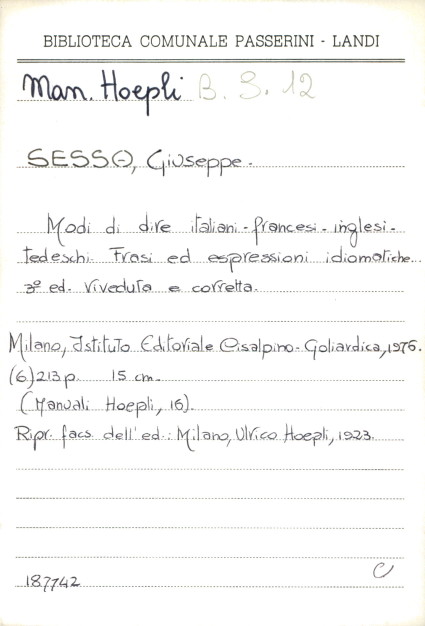 BIBLIOTECA COMUNALE PASSERINI - LANDI
Man. Hoepli B. 3. 12
SESSO, Giuseppe.
Modi di dire italiani-francesi-inglesi-
tedeschi. Frasi ed espressioni idiomatiche...
3ª ed. riveduta e corretta.
Milano, Istituto Editoriale Cisalpino-Goliardica, 1976.
(6) 213 p. 15 cm.
(Manuali Hoepli, 16).
Ripr. facs. dell'ed.: Milano, Ulrico Hoepli, 1923.
187742
C